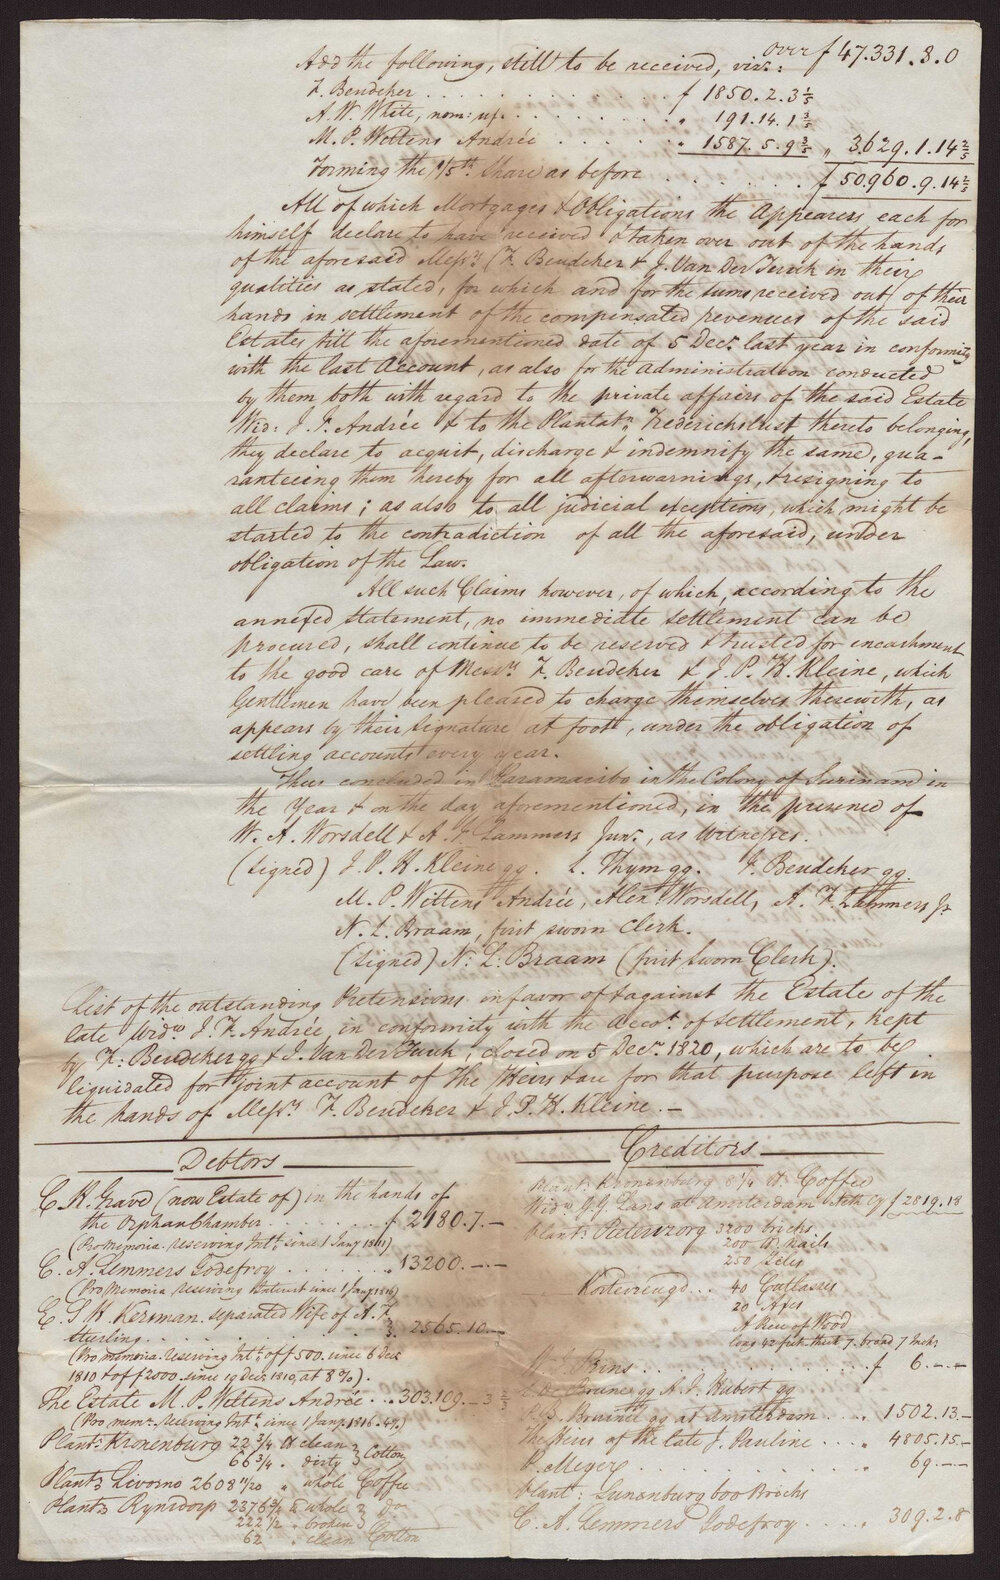 over f 47.331.8.0
Add the following, still to be received, viz.:
F. Beudeker . . . . . . . . . . f 1850.2.3 1/5
A. W. White, nom: ux. . . . . . . . . . " 191.14.1 3/5
M. P. Wittens Andrée . . . . . . " 1587.5.9 3/5 " 3.629.1.14 2/5
Forming the 1/5th Share as before . . . . . . . f 50.960.9.14 2/5
All of which Mortgages & Obligations the Appearers each for
himself declare to have received & taken over out of the hands
of the aforesaid Messrs F. Beudeker & J. Van Der Turck in their
qualities as stated, for which and for the sums received out of their
hands in settlement of the compensated revenues of the said
Estates till the aforementioned date of 5 Decr. last year in conformity
with the last Account, as also for the administration conducted
by them both with regard to the private affairs of the said Estate
Wid: J. F. Andrée & to the Plantatn. Frederichslust thereto belonging,
they declare to acquit, discharge & indemnify the same, gua-
ranteeing them hereby for all afterwarnings, & resigning to
all claims; as also to all judicial exceptions, which might be
started to the contradiction of all the aforesaid, under
obligation of the Law.
All such Claims however, of which, according to the
annexed statement, no immediate settlement can be
procured, shall continue to be reserved & trusted for encashment
to the good care of Messrs. F. Beudeker & J. P. H. Kleine, which
Gentlemen have been pleased to charge themselves therewith, as
appears by their Signature at foot, under the obligation of
settling accounts every year.
Thus concluded in Paramaribo in the Colony of Surinam in
the Year & on the day aforementioned, in the presence of
W. A. Worsdell & A. F. Lammers Junr., as Witnesses.
(signed) J. P. H. Kleine qq. L. Thym qq. F. Beudeker qq.
M. P. Wittens Andrée, Alexr Worsdell, A. F. Lammers Jr
N. L. Braam, first sworn Clerk.
(signed) N. L. Braam (first Sworn Clerk).
List of the outstanding Pretensions in favor of & against the Estate of the
late Widw J. F. Andrée, in conformity with the Accot. of Settlement, kept
by F: Beudeker qq & J. Van Der Turck, closed on 5 Decr. 1820, which are to be
liquidated for joint account of the Heirs & are for that purpose left in
the hands of Messrs F. Beudeker & J. P. H. Kleine. —
Debtors
C. H. Grave (now Estate of) in the hands of
the Orphan Chamber . . . . . . . f 2180.7.—
(Pro Memoria. reserving Intt. since 1 Jany 1811)
C. A. Lemmers Godefroy . . . . . . . " 13200.—.—
(Pro Memoria reserving Interest since 1 Jany 1816)
E. S. H. Kersman separated Wife of A. F.
Sterling . . . . . . . . . . 2565.10.—
(Pro memoria. reserving Intt. of f 500. since 6 Decr
1810 & of f 2000. since 19 Decr. 1810, at 8%).
The Estate M. P. Wittens Andrée . . 303.109.—3 2/5
(Pro memr. reserving Intt. since 1 Jany 1816. 4%)
Plantn: Kronenburg 22 3/4 lb clean } Cotton
66 3/4 " dirty }
Plantn: Livorno 2608 11/20 " whole Coffee
Plantn: Rynsdorp 2376 9/20 lb whole } do
222 1/2 " broken }
62 " clean Cotton
Creditors
Plant: Kronenburg 8 1/4 lb Coffee
Widw. G. G. Lans at Amsterdam Neth Cy f 2819.18
Plant: Pieterszorg 3200 bricks
200 lb Nails
250 Tiles
Kortevreugd . . . 40 Cutlasses
20 Axes
A Piece of Wood
long 42 feet thick 7. broad 7 Inchs
W. Prins . . . . . . . . . . . . . . . . f 6.—.—
L. De Brune qq A. J. Hubert qq
at Amsterdam . . . . 1502.13.—
The Heirs of the late J. Pauline . . . . " 4805.15.—
P. Meyer . . . . . . . . . . . . . . " 69.—.—
Plant: Lunenburg 600 Bricks
C. A. Lemmers Godefroy . . . . . " 309.2.8